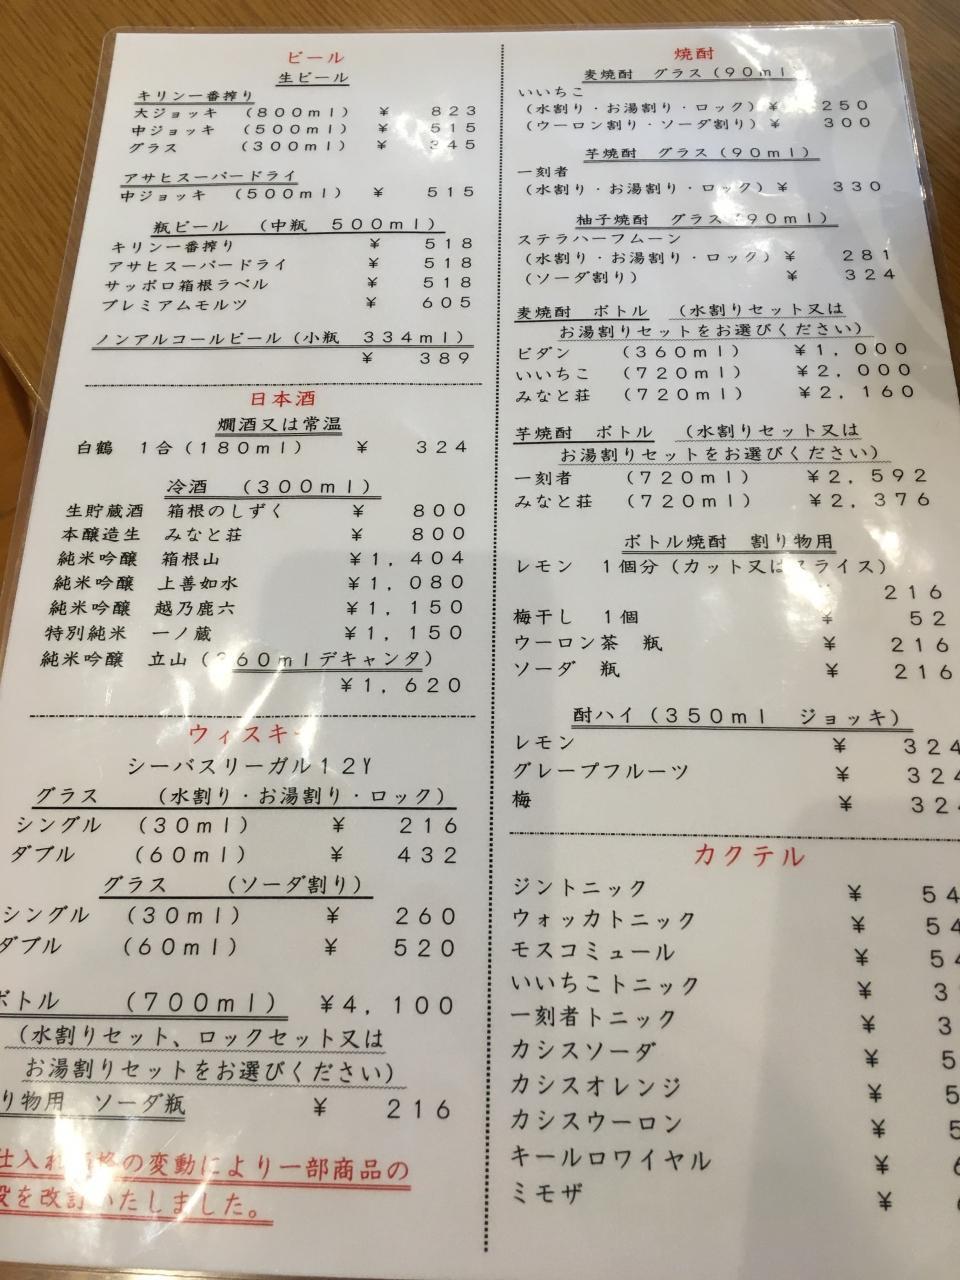 ビール
生ビール
キリン一番搾り
大ジョッキ (800ml) ¥ 823
中ジョッキ (500ml) ¥ 515
グラス (300ml) ¥ 345
アサヒスーパードライ
中ジョッキ (500ml) ¥ 515
瓶ビール (中瓶 500ml)
キリン一番搾り ¥ 518
アサヒスーパードライ ¥ 518
サッポロ箱根ラベル ¥ 518
プレミアムモルツ ¥ 605
ノンアルコールビール(小瓶 334ml)
¥ 389
日本酒
燗酒又は常温
白鶴 1合(180ml) ¥ 324
冷酒 (300ml)
生貯蔵酒 箱根のしずく ¥ 800
本醸造生 みなと荘 ¥ 800
純米吟醸 箱根山 ¥1,404
純米吟醸 上善如水 ¥1,080
純米吟醸 越乃鹿六 ¥1,150
特別純米 一ノ蔵 ¥1,150
純米吟醸 立山(360mlデキャンタ)
¥1,620
ウィスキー
シーバスリーガル12Y
グラス (水割り・お湯割り・ロック)
シングル (30ml) ¥ 216
ダブル (60ml) ¥ 432
グラス (ソーダ割り)
シングル (30ml) ¥ 260
ダブル (60ml) ¥ 520
ボトル (700ml) ¥4,100
(水割りセット、ロックセット又は
お湯割りセットをお選びください)
り物用 ソーダ瓶 ¥ 216
仕入れ価格の変動により一部商品の
段を改訂いたしました。
焼酎
麦焼酎 グラス(90ml)
いいちこ
(水割り・お湯割り・ロック) ¥ 250
(ウーロン割り・ソーダ割り) ¥ 300
芋焼酎 グラス(90ml)
一刻者
(水割り・お湯割り・ロック) ¥ 330
柚子焼酎 グラス(90ml)
ステラハーフムーン
(水割り・お湯割り・ロック) ¥ 281
(ソーダ割り) ¥ 324
麦焼酎 ボトル (水割りセット又は
お湯割りセットをお選びください)
ビダン (360ml) ¥1,000
いいちこ (720ml) ¥2,000
みなと荘 (720ml) ¥2,160
芋焼酎 ボトル (水割りセット又は
お湯割りセットをお選びください)
一刻者 (720ml) ¥2,592
みなと荘 (720ml) ¥2,376
ボトル焼酎 割り物用
レモン 1個分(カット又はスライス)
216
梅干し 1個 ¥ 52
ウーロン茶 瓶 ¥ 216
ソーダ 瓶 ¥ 216
酎ハイ(350ml ジョッキ)
レモン ¥ 324
グレープフルーツ ¥ 324
梅 ¥ 324
カクテル
ジントニック ¥ 54
ウォッカトニック ¥ 54
モスコミュール ¥ 54
いいちこトニック ¥ 3
一刻者トニック ¥ 3
カシスソーダ ¥ 5
カシスオレンジ ¥ 5
カシスウーロン ¥ 5
キールロワイヤル ¥ 6
ミモザ ¥